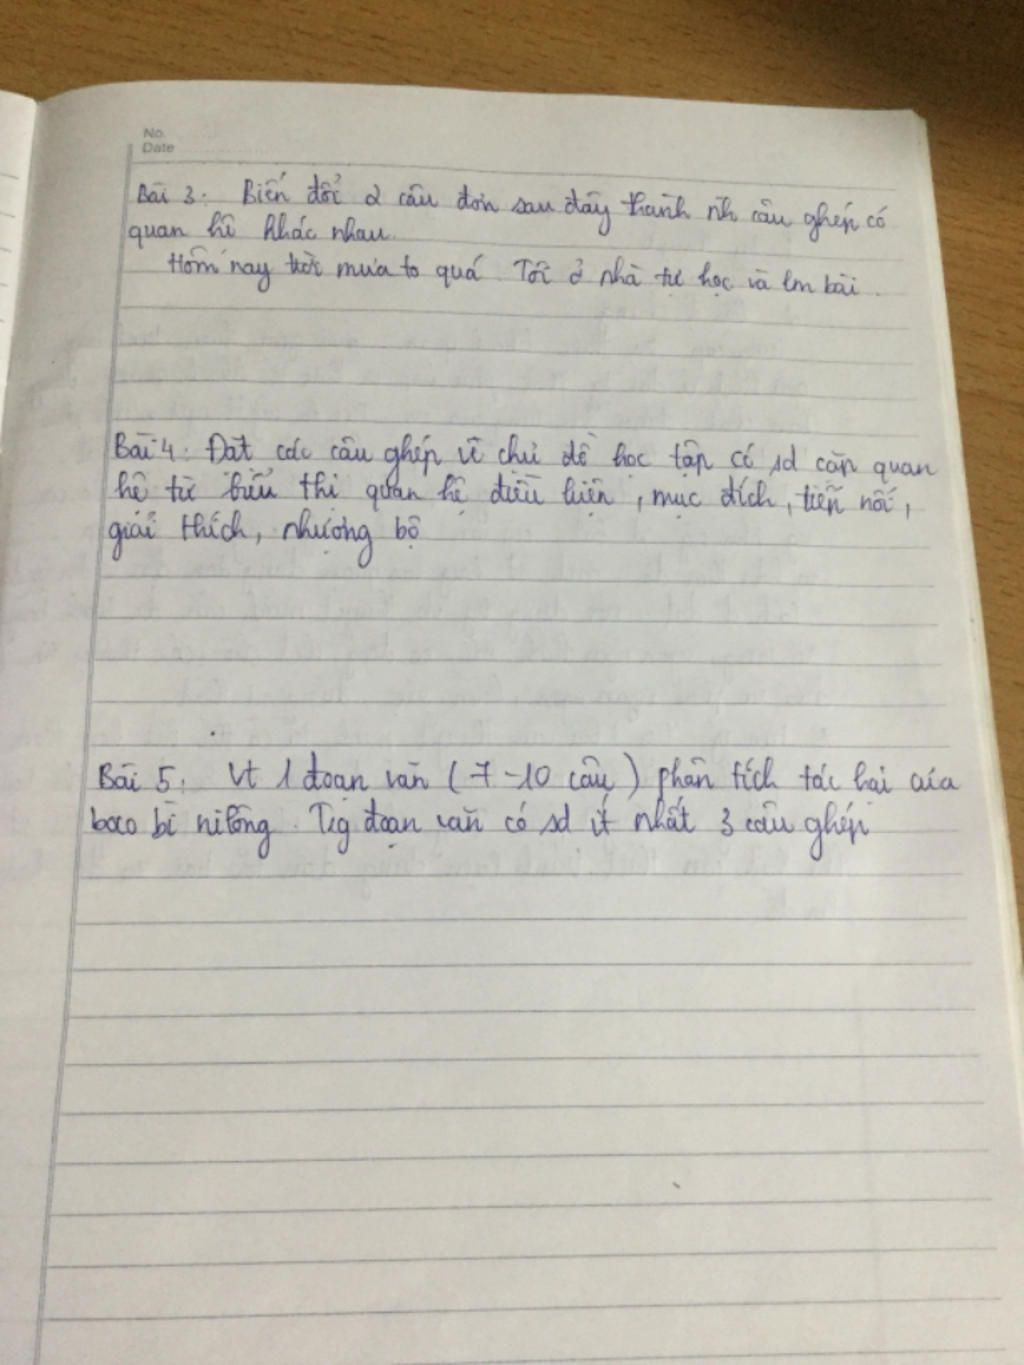 No.
Date
Bài 3: Biến đổi 2 câu đơn sau đây thành nh câu ghép có
quan hệ khác nhau.
Hôm nay trời mưa to quá. Tôi ở nhà tự học và lm bài.
Bài 4: Đặt các câu ghép về chủ đề học tập có sd cặp quan
hệ từ biểu thị quan hệ điều kiện, mục đích, tiếp nối,
giải thích, nhượng bộ
Bài 5: Vt 1 đoạn văn (7-10 câu) phân tích tác hại của
bao bì nilông. Trg đoạn văn có sd ít nhất 3 câu ghép